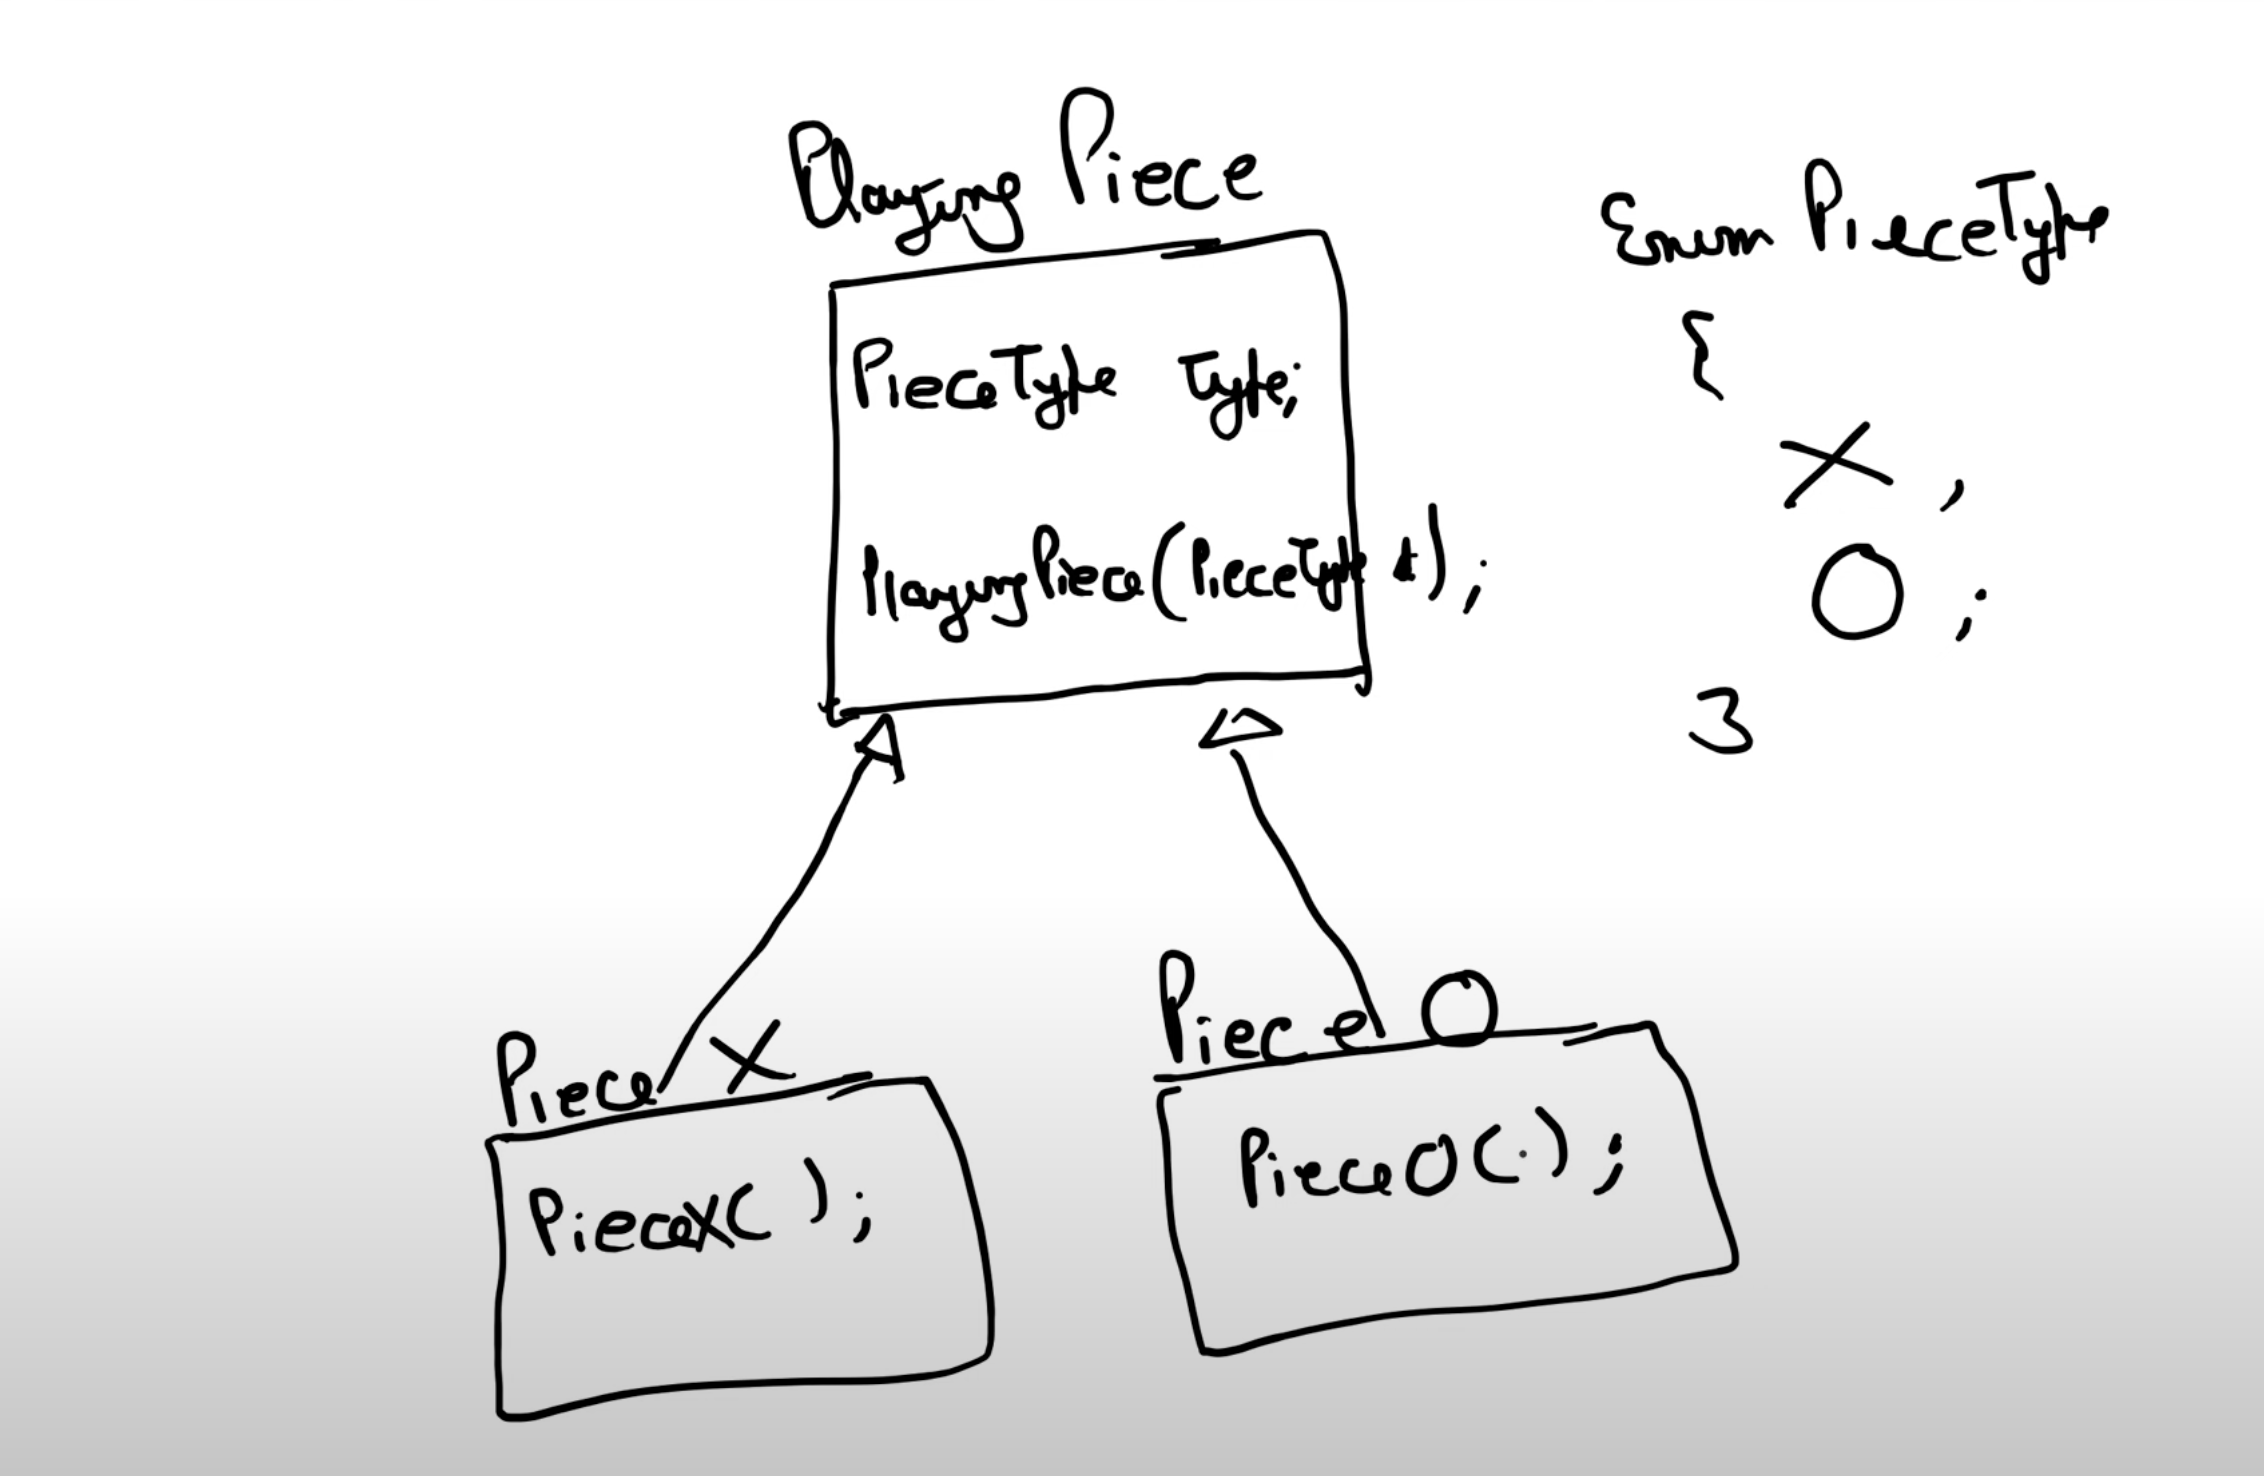 Playing Piece
PieceType Type;
PlayingPiece(PieceType t);
Enum PieceType
{
X,
O;
}
Piece X
PieceX( );
Piece O
PieceO( );